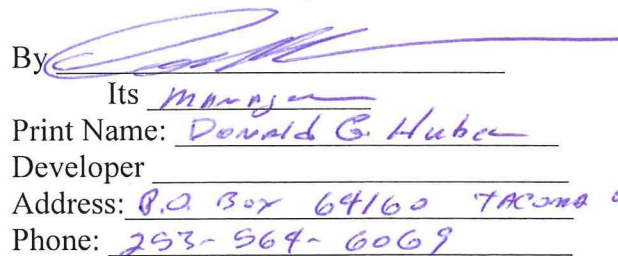 By
Its Manager
Print Name: Donald G. Huber
Developer
Address: P.O. Box 64160 TACOMA
Phone: 253-564-6069